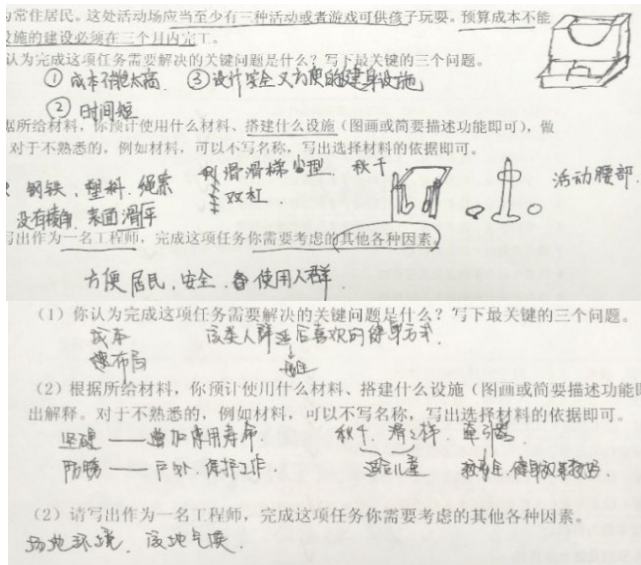 为常住居民。这处活动场应当至少有三种活动或者游戏可供孩子玩耍。预算成本不能
设施的建设必须在三个月内完工。
认为完成这项任务需要解决的关键问题是什么？写下最关键的三个问题。
① 成本不能太高 ③ 设计安全又方便的健身设施
② 时间短
据所给材料，你预计使用什么材料、搭建什么设施（图画或简要描述功能即可），做
对于不熟悉的，例如材料，可以不写名称，写出选择材料的依据即可。
钢铁、塑料、绳索 滑滑梯 小型 秋千 活动腰部
没有棱角 表面滑平 双杠
写出作为一名工程师，完成这项任务你需要考虑的其他各种因素。
方便居民、安全、使用人群
（1）你认为完成这项任务需要解决的关键问题是什么？写下最关键的三个问题。
成本 该类人群 喜欢的健身方式
布局
（2）根据所给材料，你预计使用什么材料、搭建什么设施（图画或简要描述功能
出解释。对于不熟悉的，例如材料，可以不写名称，写出选择材料的依据即可。
坚硬——增加使用寿命 秋千、滑滑梯、牵引器
防锈——户外、保护工作 适合儿童
（2）请写出作为一名工程师，完成这项任务你需要考虑的其他各种因素。
场地环境、该地气候